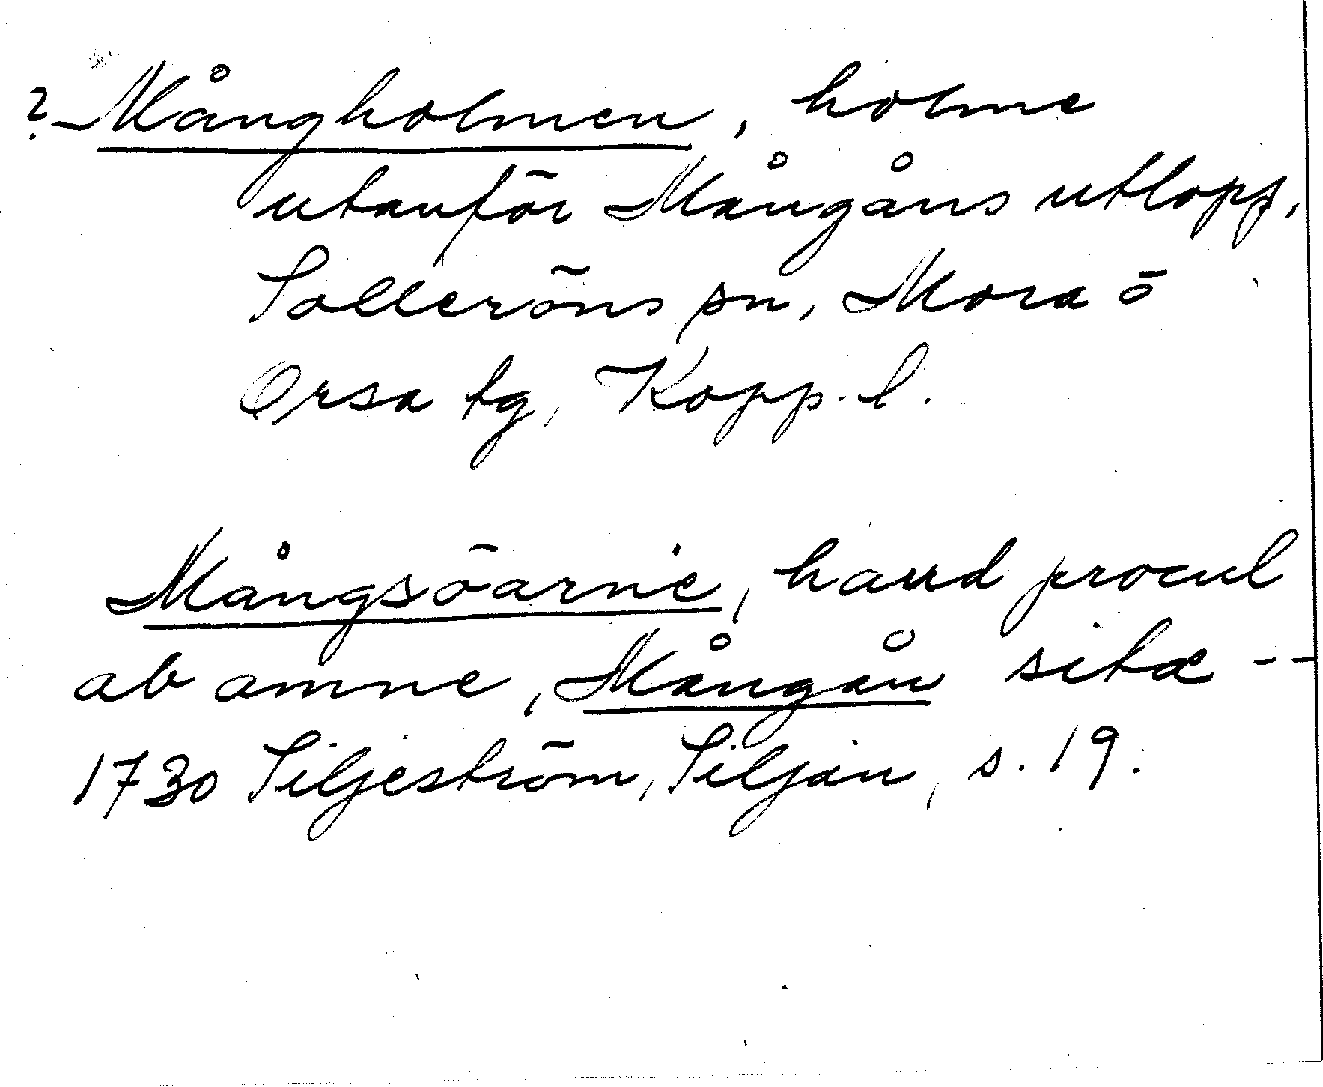 ? Mångholmen, holme
utanför Mångåns utlopp,
Solleröns sn, Mora ö
Orsa tg, Kopp. l.
Mångsöarne, haud procul
ab amne, Mångån sitæ --
1730 Siljeström, Siljan, s. 19.